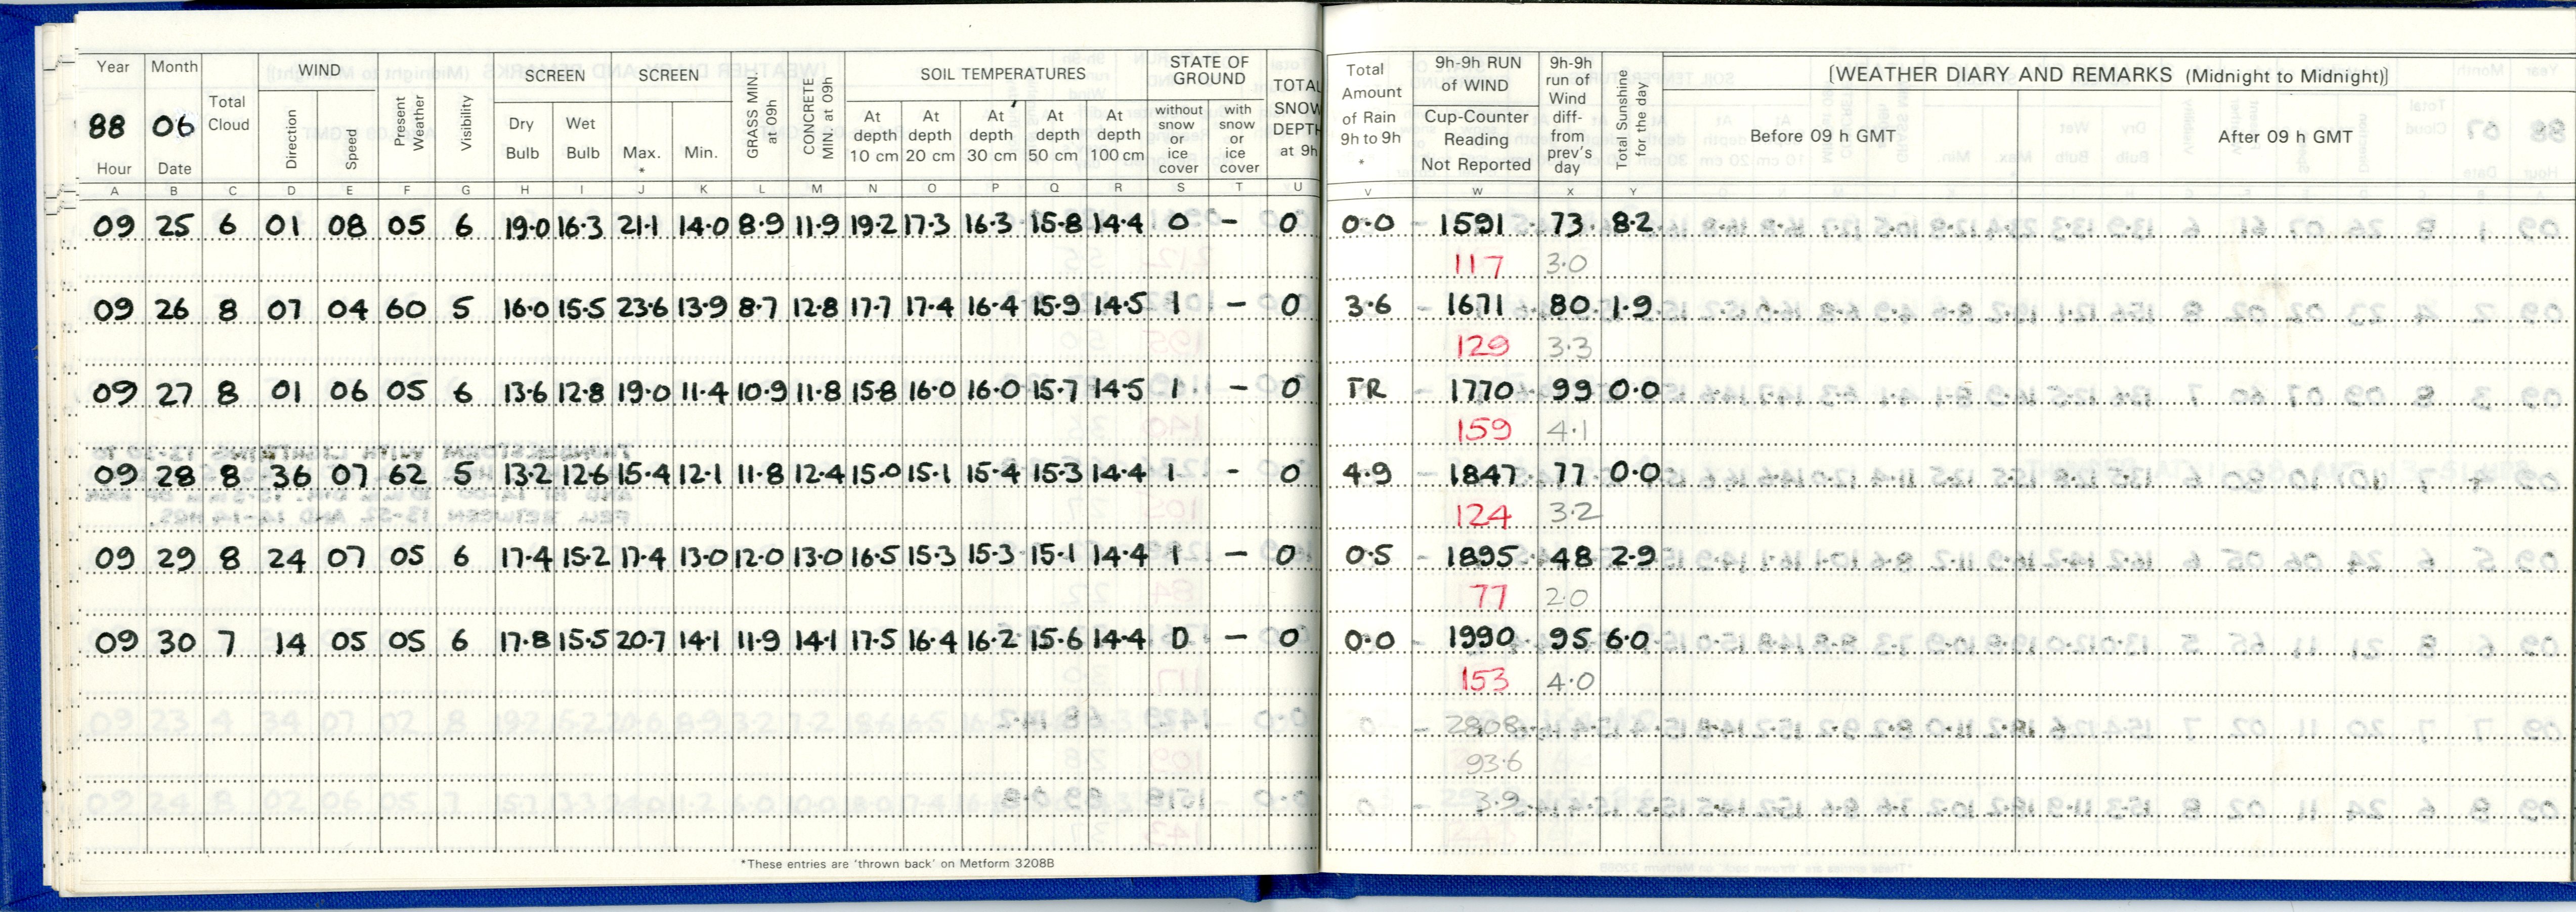 Year Month WIND SCREEN SCREEN SOIL TEMPERATURES STATE OF GROUND TOTAL SNOW DEPTH at 9h Total Amount of Rain 9h to 9h * 9h-9h RUN of WIND 9h-9h run of Wind diff- from prev's day Total Sunshine for the day [WEATHER DIARY AND REMARKS (Midnight to Midnight)]
88 06 Total Cloud Direction Speed Present Weather Visibility Dry Bulb Wet Bulb Max. * Min. GRASS MIN at 09h CONCRETE MIN at 09h At depth 10 cm At depth 20 cm At depth 30 cm At depth 50 cm At depth 100 cm without snow or ice cover with snow or ice cover Cup-Counter Reading Not Reported Before 09 h GMT After 09 h GMT
Hour Date
A B C D E F G H I J K L M N O P Q R S T U V W X Y
09 25 6 01 08 05 6 19.0 16.3 21.1 14.0 8.9 11.9 19.2 17.3 16.3 15.8 14.4 0 - 0 0.0 1591 73 8.2
117 3.0
09 26 8 07 04 60 5 16.0 15.5 23.6 13.9 8.7 12.8 17.7 17.4 16.4 15.9 14.5 1 - 0 3.6 1671 80 1.9
129 3.3
09 27 8 01 06 05 6 13.6 12.8 19.0 11.4 10.9 11.8 15.8 16.0 16.0 15.7 14.5 1 - 0 TR 1770 99 0.0
159 4.1
09 28 8 36 07 62 5 13.2 12.6 15.4 12.1 11.8 12.4 15.0 15.1 15.4 15.3 14.4 1 - 0 4.9 1847 77 0.0
124 3.2
09 29 8 24 07 05 6 17.4 15.2 17.4 13.0 12.0 13.0 16.5 15.3 15.3 15.1 14.4 1 - 0 0.5 1895 48 2.9
77 2.0
09 30 7 14 05 05 6 17.8 15.5 20.7 14.1 11.9 14.1 17.5 16.4 16.2 15.6 14.4 0 - 0 0.0 1990 95 6.0
153 4.0
2808
93.6
3.9
*These entries are 'thrown back' on Metform 3208B